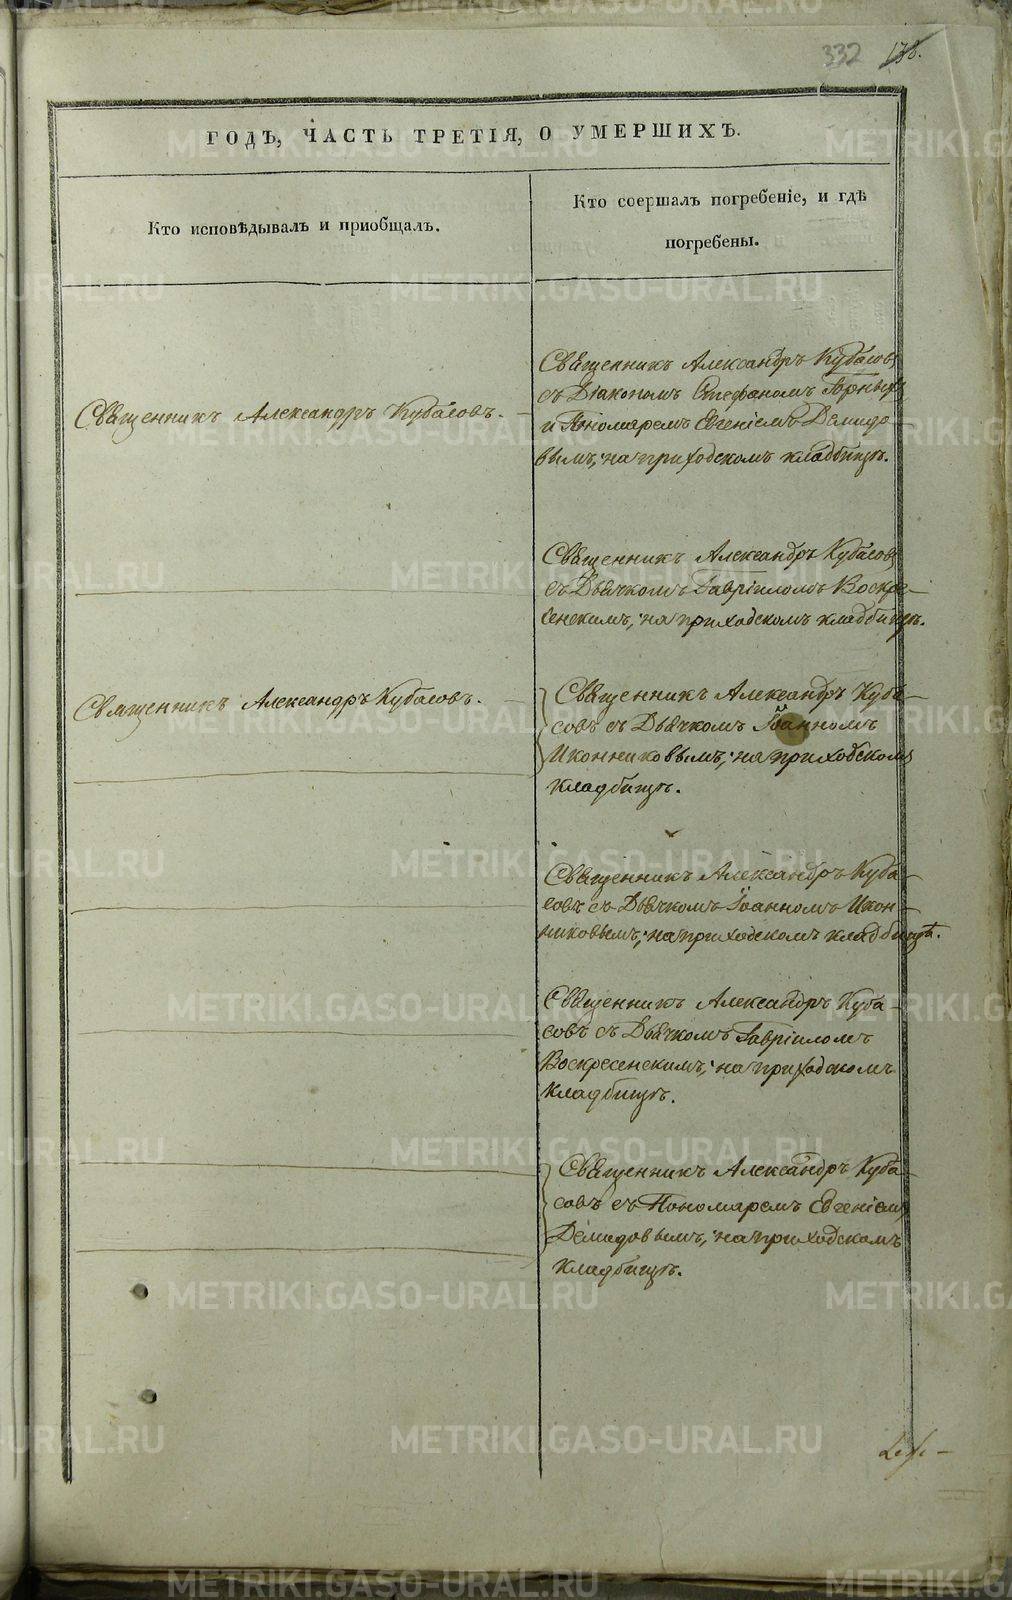 332 138.
ГОДЪ, ЧАСТЬ ТРЕТІЯ, О УМЕРШИХЪ.
Кто исповѣдывалъ и приобщалъ.
Кто соершалъ погребеніе, и гдѣ
погребены.
Священникъ Александръ Кубасовъ
съ Діакономъ Стефаномъ
и Пономаремъ Евгеніемъ Демидо-
вымъ, на приходскомъ кладбищѣ.
Священникъ Александръ Кубасовъ.
Священникъ Александръ Кубасовъ
съ Дьячкомъ Гавріиломъ Воскре-
сенскимъ, на приходскомъ кладбищѣ.
Священникъ Александръ Кубасовъ.
Священникъ Александръ Куба-
совъ съ Дьячкомъ Іоанномъ
Иконниковымъ, на приходскомъ
кладбищѣ.
Священникъ Александръ Куба-
совъ съ Дьячкомъ Іоанномъ Икон-
никовымъ, на приходскомъ кладбищѣ.
Священникъ Александръ Куба-
совъ съ Дьячкомъ Гавріиломъ
Воскресенскимъ, на приходскомъ
кладбищѣ.
Священникъ Александръ Куба-
совъ съ Пономаремъ Евгеніемъ
Демидовымъ, на приходскомъ
кладбищѣ.
METRIKI.GASO-URAL.RU